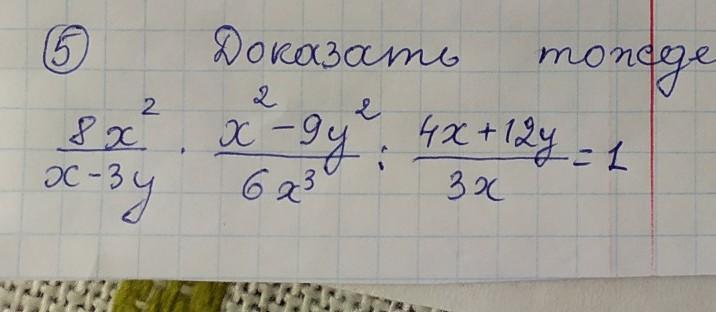 5 Доказать тожде
8x²/(x-3y) · (x²-9y²)/(6x³) : (4x+12y)/(3x) = 1